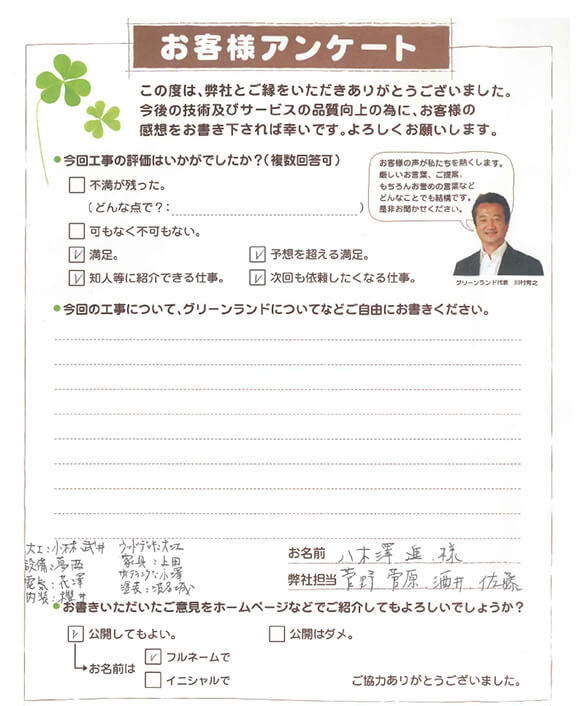 お客様アンケート
この度は、弊社とご縁をいただきありがとうございました。
今後の技術及びサービスの品質向上の為に、お客様の
感想をお書き下されば幸いです。よろしくお願いします。
今回工事の評価はいかがでしたか?(複数回答可)
不満が残った。
(どんな点で?: )
可もなく不可もない。
満足。
予想を超える満足。
知人等に紹介できる仕事。
次回も依頼したくなる仕事。
お客様の声が私たちを熱くします。
厳しいお言葉、ご提案、
もちろんお誉めの言葉など
どんなことでも結構です。
是非お聞かせください。
グリーンランド代表 川村秀之
今回の工事について、グリーンランドについてなどご自由にお書きください。
大工:小林 武井
設備:葛西
電気:花澤
内装:櫻井
家具:上田
塗装:
お名前 八木澤 進 様
弊社担当 菅野 菅原 酒井 佐藤
お書きいただいたご意見をホームページなどでご紹介してもよろしいでしょうか?
公開してもよい。
公開はダメ。
お名前は
フルネームで
イニシャルで
ご協力ありがとうございました。